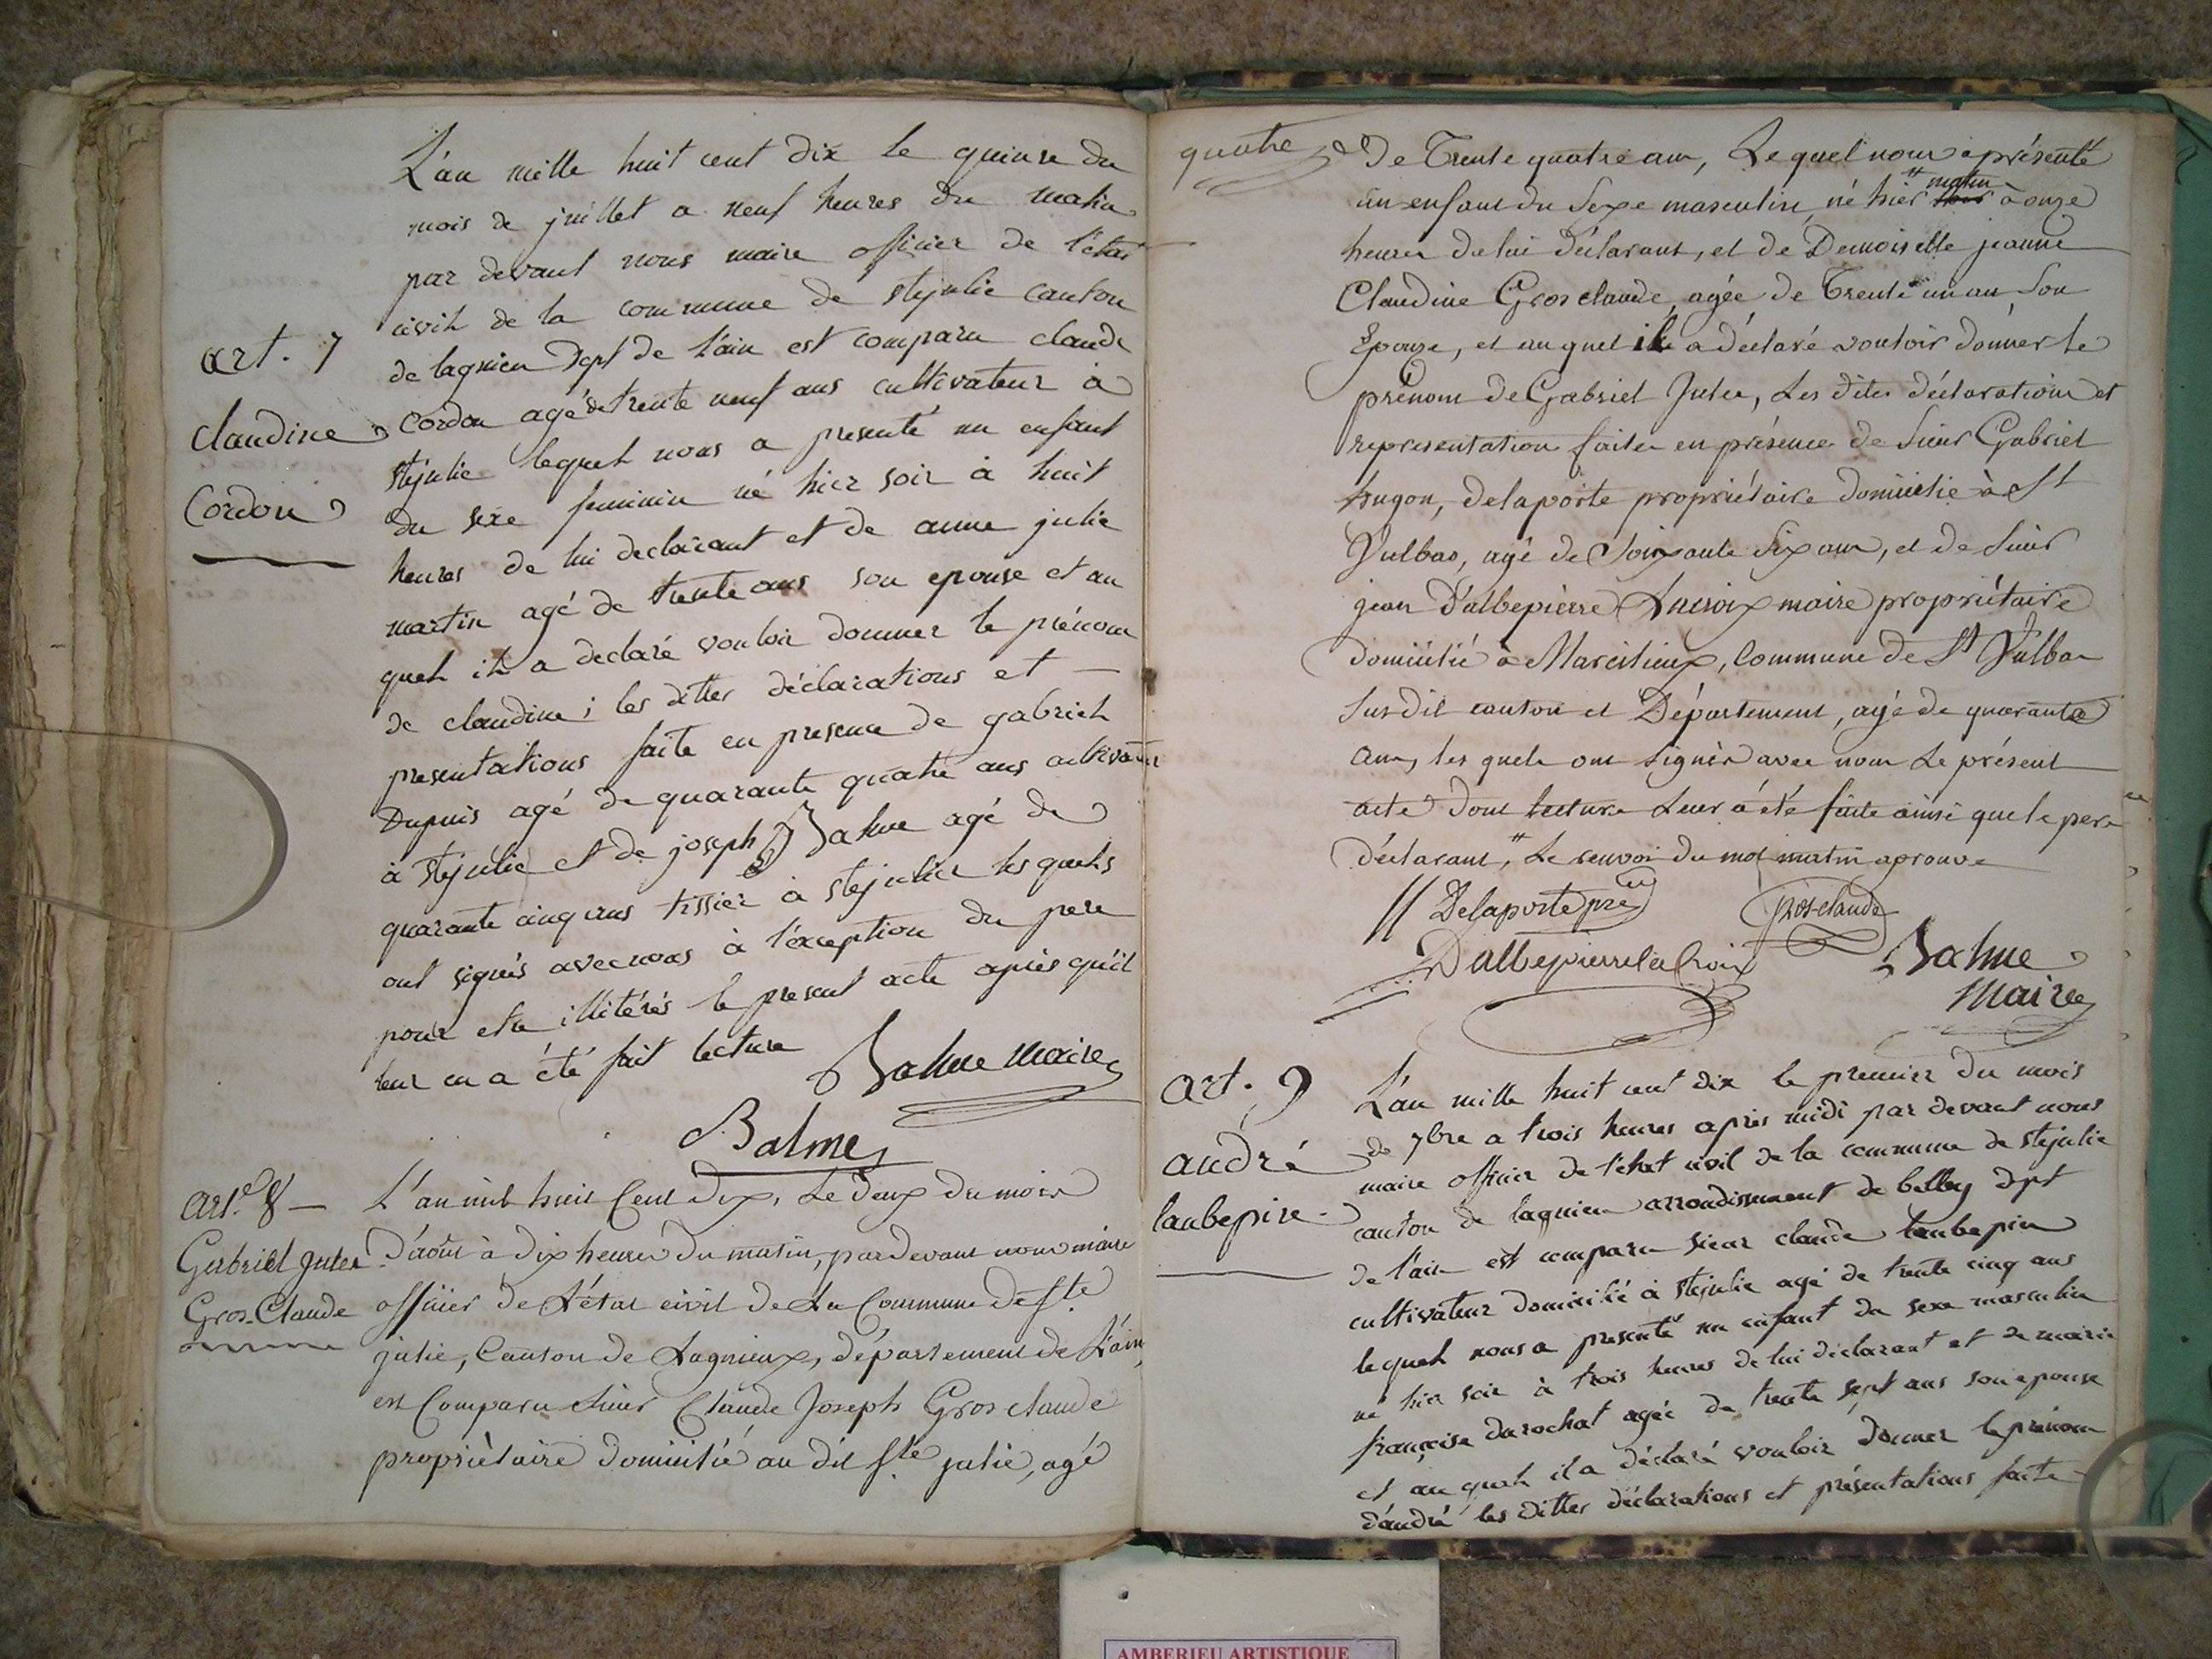 L'an mille huit cent dix le quinse du
mois de juillet a neuf heures du matin
par devant nous maire officier de l'état
civil de la commune de stejulie canton
de lagnieu dept de l'ain est comparu claude
art. 7
cordon agé de trente neuf ans cultivateur à
claudine
stejulie lequel nous a presenté un enfant
cordon
du sexe feminin né hier soir à huit
heures de lui declarant et de anne julie
martin agé de trente ans son epouse et au
quel il a declaré vouloir donner le prénom
de claudine; les dittes déclarations et
presentations faite en presence de gabriel
Dupuis agé de quarante quatre ans cultivateur
à stejulie et de joseph Balme agé de
quarante cinq ans tissier à stejulie les quels
ont signés avec nous à l'exception du pere
pour etre illitérés le present acte après qu'il
leur en a été fait lecture
Balme maire
Balme
art.e 8 —
L'an mil huit Cent dix, Le deux du mois
Gabriel Jules
d'août à dix heures du matin, pardevant nous maire
Gros-Claude
officier de L'état civil de La Commune de Ste
julie, Canton de Lagnieux, département de L'ain,
est Comparu Sieur Claude Joseph Gros claude
propriètaire domicilié au dit Ste julie, agé
quatre
De Trente quatre ans, Le quel nous a présenté
un enfant du Sexe masculin, né hier matin à onze
heures de lui déclarant, et de Demoiselle jeanne
Claudine Gros claude, agée de Trente un an Son
Epouze, et au quel il a déclaré vouloir dònner le
prénom de Gabriel Jules, Les dites déclarations et
representation faites en présence de Sieur Gabriel
hugon, delaporte propriétaire domicilié à St
Vulbas, agé de Soixante Six ans, et de Sieur
jean D'albepierre Lacroix maire propriétaire
domicilié à Marcilieux, Commune de St Vulbas
Susdit canton et Département, agé de quarante
ans, les quels ont signés avec nous Le présent
acte dont lecture Leur a été faite ainsi que le pere
déclarant, " Le renvoi du mot matin aprouvé
Delaporte pre
Gros-claude
Dalbepierrelacroix
Balme
maire
art. 9
L'an mille huit cent dix le premier du mois
de 7bre a trois heures après midi par devant nous
andré
maire officier de l'etat civil de la commune de stejulie
laubepin
canton de lagnieu arrondissement de belley dept
de l'ain est comparu sieur claude laubepin
cultivateur domicilié à stejulie agé de trente cinq ans
lequel nous a presenté un enfant du sexe masculin
né hier soir à trois heures de lui déclarant et de marie
françoise durochat agée de trente sept ans son epouse
et au quel il a déclaré vouloir donner le prénom
d'andré les dittes déclarations et présentations faite
AMBERIEU ARTISTIQUE